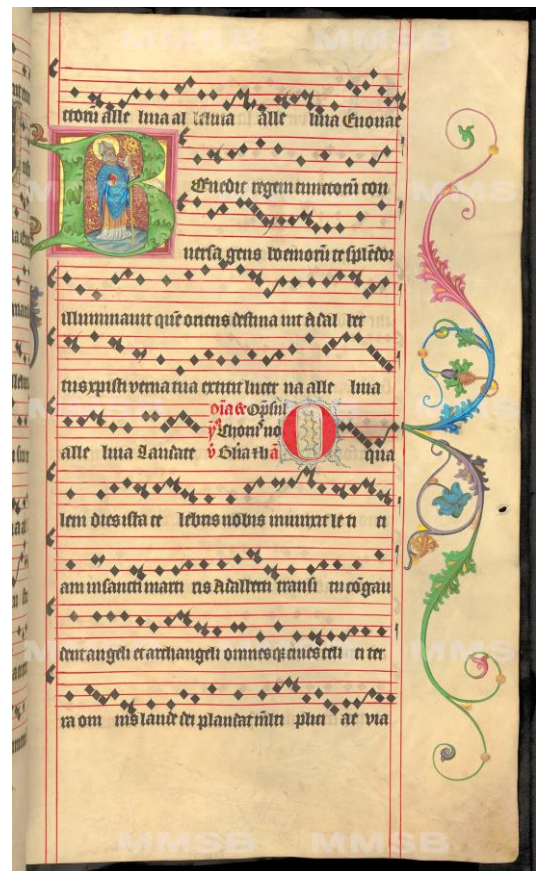 ctorum alle luia al leluia alle luia Euouae
BEnedic regem cunctorum con
uersa gens boemorum te splendor
illuminauit quem oriens destina uit Adal ber
tus xpisti verna tua extitit lucer na alle luia
alle luia Laudate
O qua
lem dies ista ce lebris nobis inuunxit le ti ci
am in sancti marti ris Adalberti transi tu congau
dent angeli et archangeli omnes que ciues celi ci ter
ra om nis laude dei plaudat multi plici ac via
MMSB
MMSB